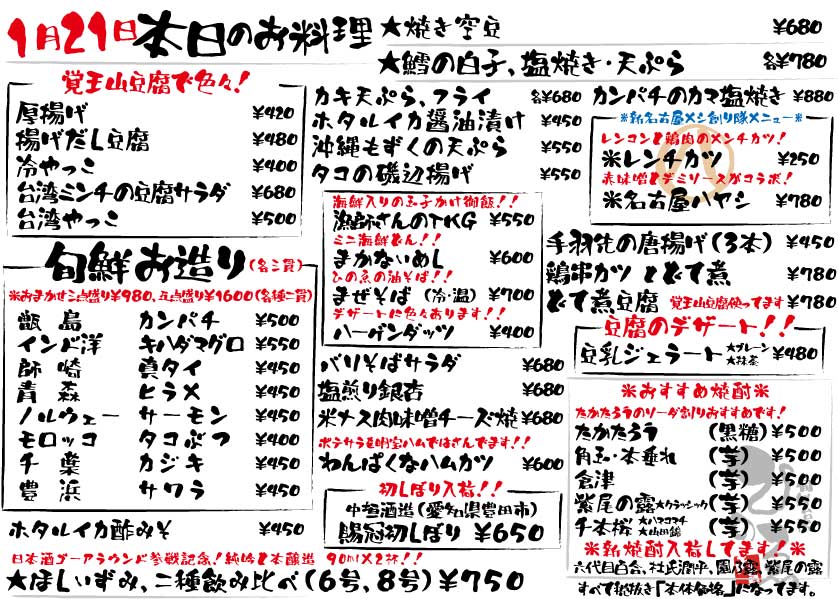 1月21日本日のお料理
★焼き空豆 ¥680
★鱈の白子、塩焼き・天ぷら 各¥780
覚王山豆腐で色々!
厚揚げ ¥420
揚げだし豆腐 ¥480
冷やっこ ¥400
台湾ミンチの豆腐サラダ ¥680
台湾やっこ ¥500
旬鮮お造り(各二貫)
※おまかせ三点盛り¥980、五点盛り¥1600(各種二貫)
甑島 カンパチ ¥500
インド洋 キハダマグロ ¥550
師崎 真タイ ¥450
青森 ヒラメ ¥450
ノルウェー サーモン ¥450
モロッコ タコぶつ ¥400
千葉 カジキ ¥450
豊浜 サワラ ¥450
ホタルイカ酢みそ ¥450
日本酒ゴーアラウンド参戦記念!純吟と本醸造 90ml×2杯!!
★ほしいずみ、二種飲み比べ(6号、8号)¥750
カキ天ぷら、フライ 各¥680
ホタルイカ醤油漬け ¥450
沖縄もずくの天ぷら ¥550
タコの磯辺揚げ ¥550
海鮮入りの玉子かけ御飯!!
漁師さんのTKG ¥550
ミニ海鮮どん!!
まかないめし ¥600
ひの魚の油そば!!
まぜそば(冷・温) ¥700
デザートに色々あります!!
ハーゲンダッツ ¥400
バリそばサラダ ¥680
塩煎り銀杏 ¥680
米ナス肉味噌チーズ焼 ¥680
ポテサラを明宝ハムではさんでます!!
わんぱくなハムカツ ¥600
初しぼり入荷!!
中垣酒造(愛知県豊田市)
賜冠初しぼり ¥650
カンパチのカマ塩焼き ¥880
※新名古屋メシ創り隊メニュー※
レンコンと鶏肉のメンチカツ!
※レンチカツ ¥250
赤味噌とデミソースがコラボ!
※名古屋ハヤシ ¥780
手羽先の唐揚げ(3本) ¥450
鶏串カツ とどて煮 ¥780
どて煮豆腐 覚王山豆腐使ってます ¥780
豆腐のデザート!!
豆乳ジェラート ★プレーン ★抹茶 ¥480
※おすすめ焼酎※
たかたろうのソーダ割りおすすめです!
たかたろう (黒糖) ¥500
角玉・本垂れ (芋) ¥500
倉津 (芋) ¥500
紫尾の露★クラッシック(芋) ¥550
千本桜 ★ハマコマチ ★山田錦 (芋) ¥500
※新焼酎入荷してます!※
六代目百合、杜氏潤平、園乃露、紫尾の露
すべて税抜き「本体価格」になってます。